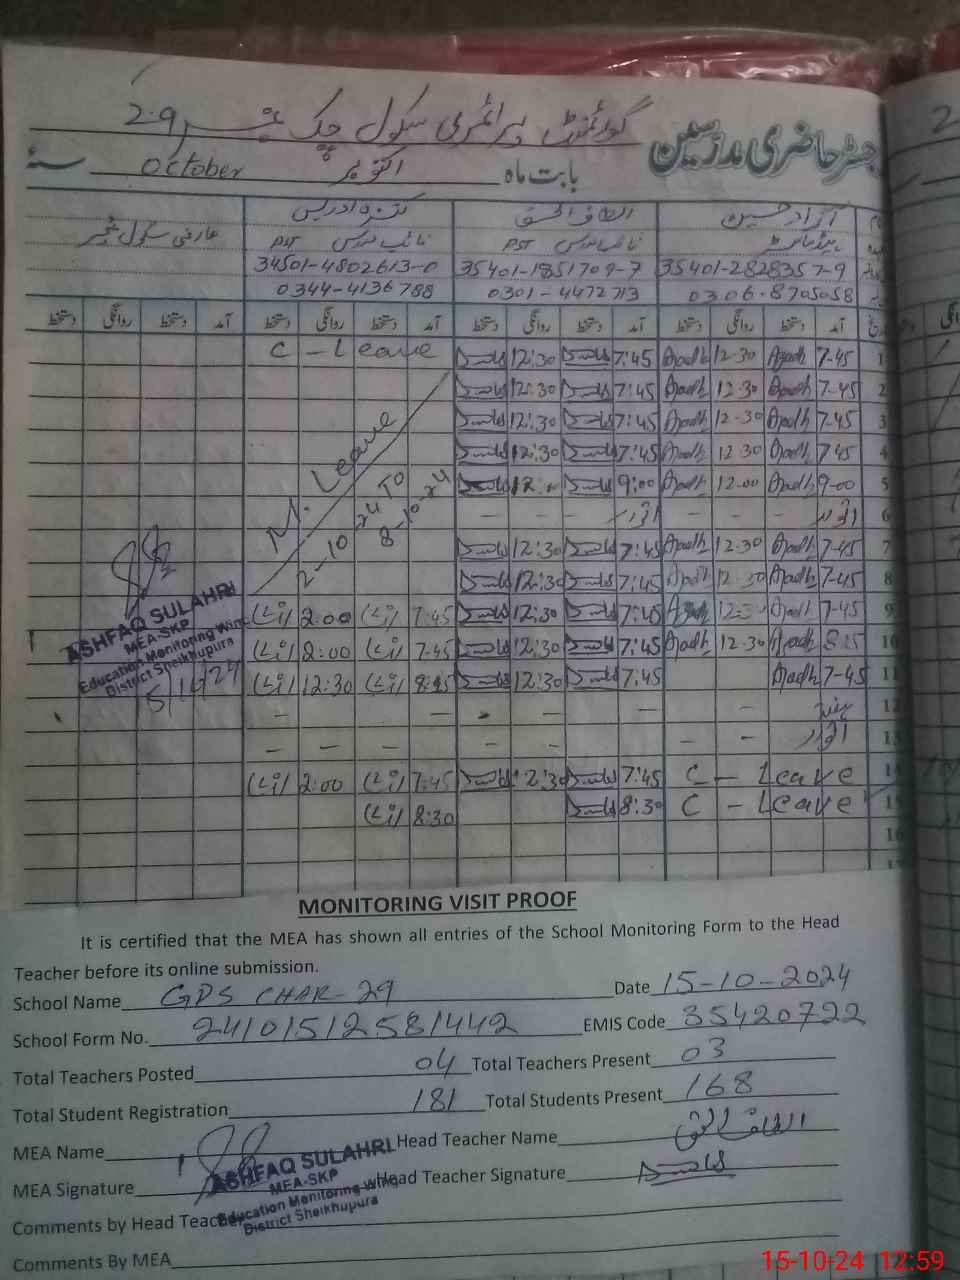 رجسٹر حاضری مدرسین گورنمنٹ پرائمری سکول چک نمبر 29
بابت ماہ اکتوبر October سنہ
آزاد حسین الطاف الحق کنزہ ادریس عارضی سکول ٹیچر
ہیڈ ماسٹر نائب مدرس PST نائب مدرس PST
35401-2828357-9 35401-1851709-7 34501-4802613-0
0306-8705058 0301-4472713 0344-4136788
تاریخ آمد دستخط روانگی دستخط آمد دستخط روانگی دستخط آمد دستخط روانگی دستخط آمد دستخط روانگی دستخط
1 7-45 Azadh 12-30 Azadh 7:45 12:30 C-Leave
2 7-45 Azadh 12-30 Azadh 7:45 12:30
3 7-45 Azadh 12-30 Azadh 7:45 12:30
4 7-45 Azadh 12-30 Azadh 7:45 12:30
5 9-00 Azadh 12-00 Azadh 9:00
6 اتوار - - - اتوار - - -
7 7-45 Azadh 12-30 Azadh 7:45 12:30
8 7-45 Azadh 12-30 Azadh 7:45 12:30
M. Leave
2-10-24 TO
8-10-24
9 7-45 Azadh 12-30 7:45 12:30 7:45 2:00
10 8:15 Azadh 12-30 Azadh 7:45 12:30 7-45 2:00
11 7-45 Azadh 7:45 12:30 8:45 12:30
12 ہفتہ - - - - - -
13 اتوار - - - - - - -
14 C - Leave 7:45 12:30 7:45 2:00
15 C - Leave 8:30 8:30
16
ASHFAQ SULAHRI
MEA-SKP
Education Monitoring Wing
District Sheikhupura
15/10/24
MONITORING VISIT PROOF
It is certified that the MEA has shown all entries of the School Monitoring Form to the Head
Teacher before its online submission.
School Name GPS CHAR-29 Date 15-10-2024
School Form No. 24101512581442 EMIS Code 35420722
Total Teachers Posted 04 Total Teachers Present 03
Total Student Registration 181 Total Students Present 168
MEA Name Head Teacher Name الطاف الحق
MEA Signature Head Teacher Signature
ASHFAQ SULAHRI
MEA-SKP
Education Monitoring Wing
District Sheikhupura
Comments by Head Teacher
Comments By MEA
15-10-24 12:59